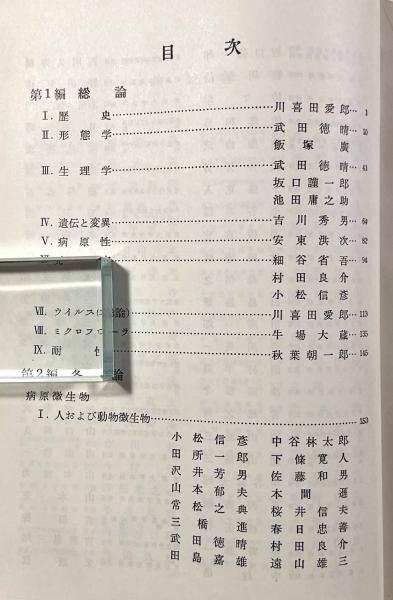 目次
第1編 総論
I. 歴史 川喜田愛郎 1
II. 形態学 武田徳晴 10
飯塚廣
III. 生理学 武田徳晴 41
坂口謹一郎
池田庸之助
IV. 遺伝と変異 吉川秀男 64
V. 病原性 安東洪次 82
細谷省吾 94
村田良介
小松信彦
VII. ウイルス(総論) 川喜田愛郎 113
VIII. ミクロフローラ 牛場大蔵 135
IX. 耐性 秋葉朝一郎 145
第2編 各論
病原微生物
I. 人および動物微生物 153
小松信彦 中谷林太郎
田所一郎 下條寛人
沢井芳男 佐藤和男
山本郁夫 本間遜
常松之典 桜井信夫
三橋進 春日忠善
武田徳晴 村田良介
田島嘉雄 遠山雄三